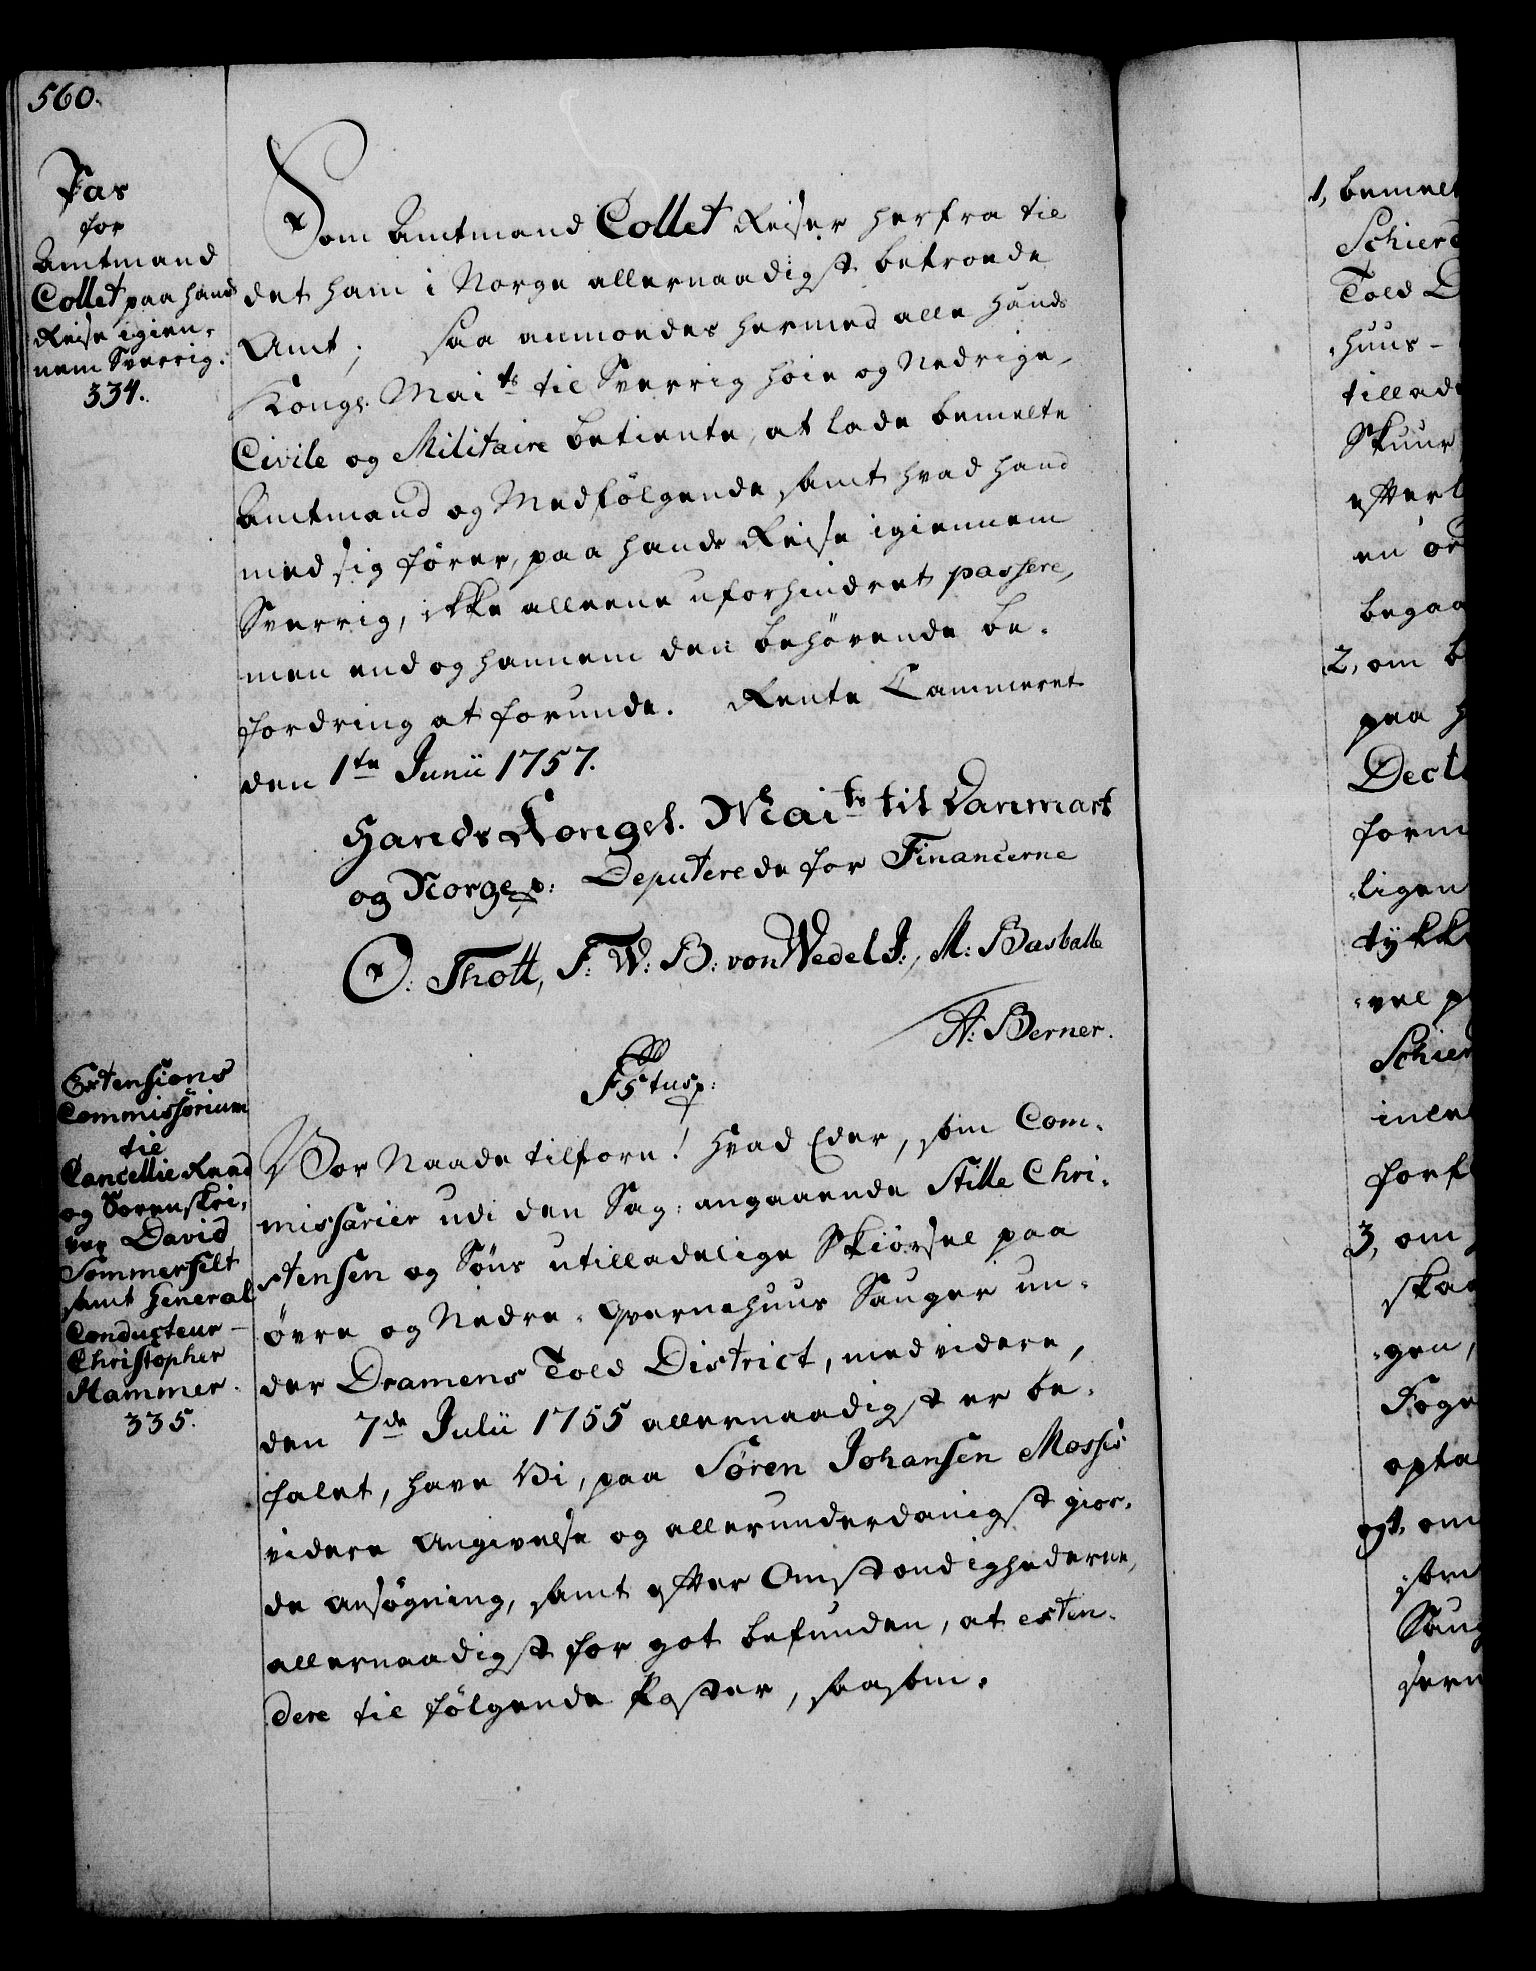 560.
Pas
for
Amtmand
Collet paa hands
Reise igien-
nem Sverrig.
334.
Som Amtmand Collet Reiser herfra til
det ham i Norge allernaadigst betroede
Amt; saa anmodes hermed alle Hands
Kongl. Maits til Sverrig høie og Nedrige,
Civile og Militaire betiente, at lade bemelte
Amtmand og Medfølgende, samt hvad hand
med sig fører, paa hands Reise igiennem
Sverrig, ikke alleene uforhindret passere,
men end og hannem den behøvende be-
fordring at forunde. Rente Cammeret
den 1te Junii 1757.
Hands Kongel. Maits til Danmark
og Norge p: Deputerede for Financerne
O: Thott, F: W: B: von Wedel J:, M: Basballe
A: Berner.
Extensions
Commissorium
til
Cancellie Raad
og Sorenskri-
ver David
Sommerfelt
samt General
Conducteur
Christopher
Hammer.
335.
F5tus p:
Vor Naade tilforn! Hvad Eder, som Com-
missarier udi den Sag: angaaende Stille Chri-
stensen og Søns utilladelige Skiørsel paa
øvre og Nedre-Qvernehuus Sauger un-
der Dramens Told District, med videre,
den 7de Julii 1755 allernaadigst er be-
falet, have Vi, paa Søren Johansen Mosses
videre Angivelse og allerunderdanigst gior-
de ansøgning, samt efter Omstændighederne,
allernaadigst for got befunden, at exten-
dere til følgende Poster, saasom.
1, bemelt
Schier
Told D
huus-
tillad
Skuur
efterl
en or
begaa
2, om b
paa H
Dect
form
ligen
tykk
vel p
Schier
inde
forf
3, om
skaa
gen,
Foge
opta
og 4, om
som
Saug